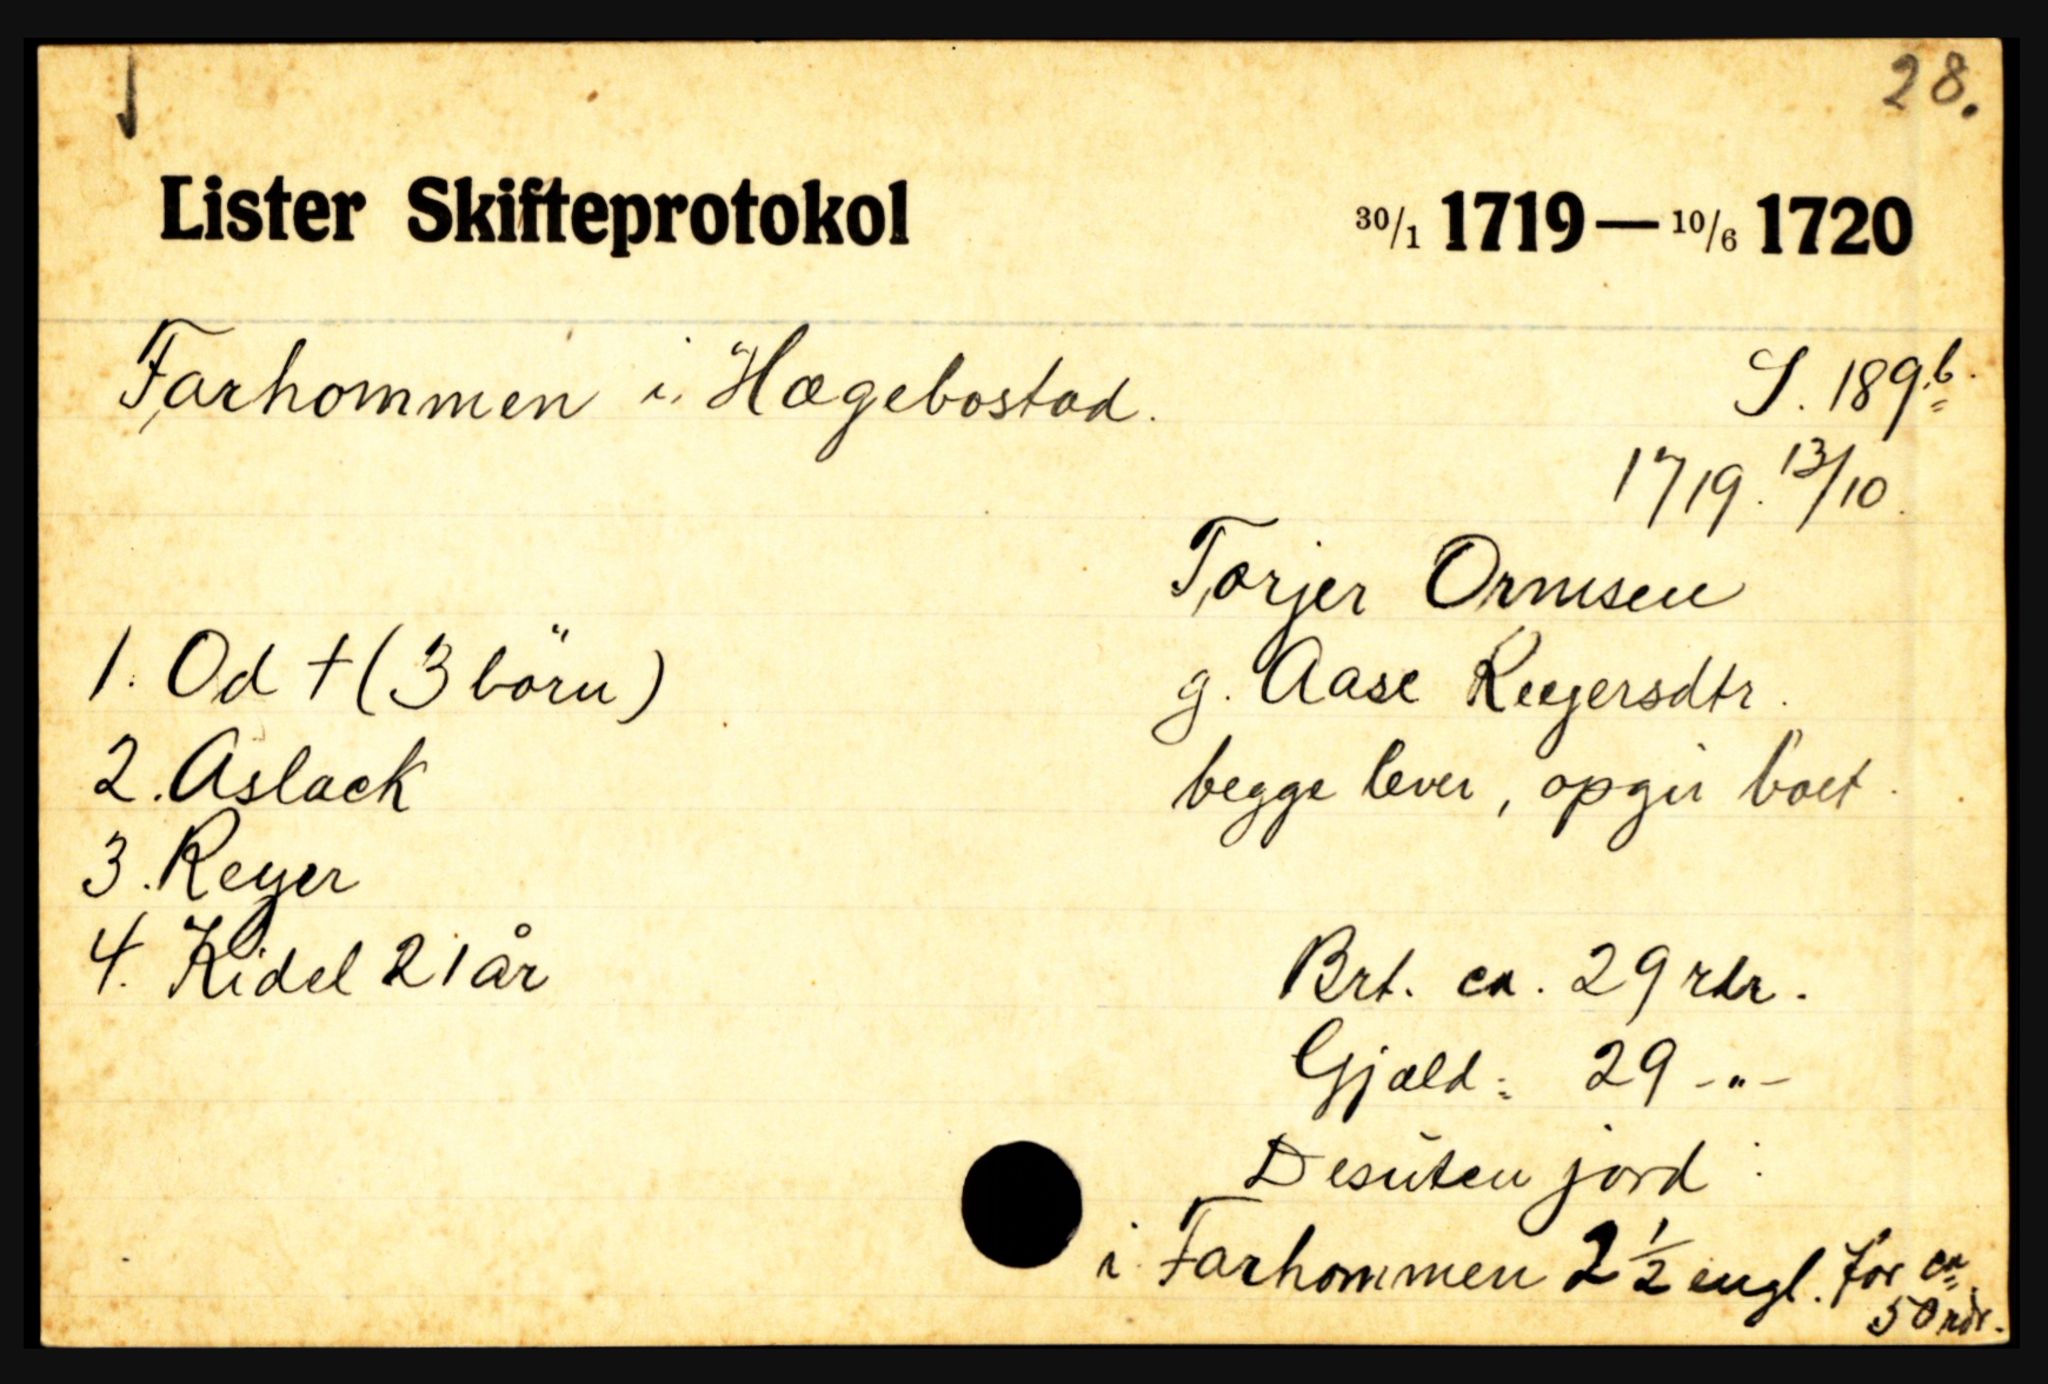 28.
Lister Skifteprotokol 30/1 1719 — 10/6 1720
Farhommen i Hægebostad. S. 189.b.
1719. 13/10.
Torjer Ormsen
1. Od † (3 börn) g. Aase Reyersdtr.
2. Aslack begge lever, opgir boet.
3. Reyer
4. Kidel 21 år Brt. ca. 29 rdr.
Gjæld: 29 -"-
Desuten jord:
i Farhommen 2 1/2 engl. for ca
50 rdr.